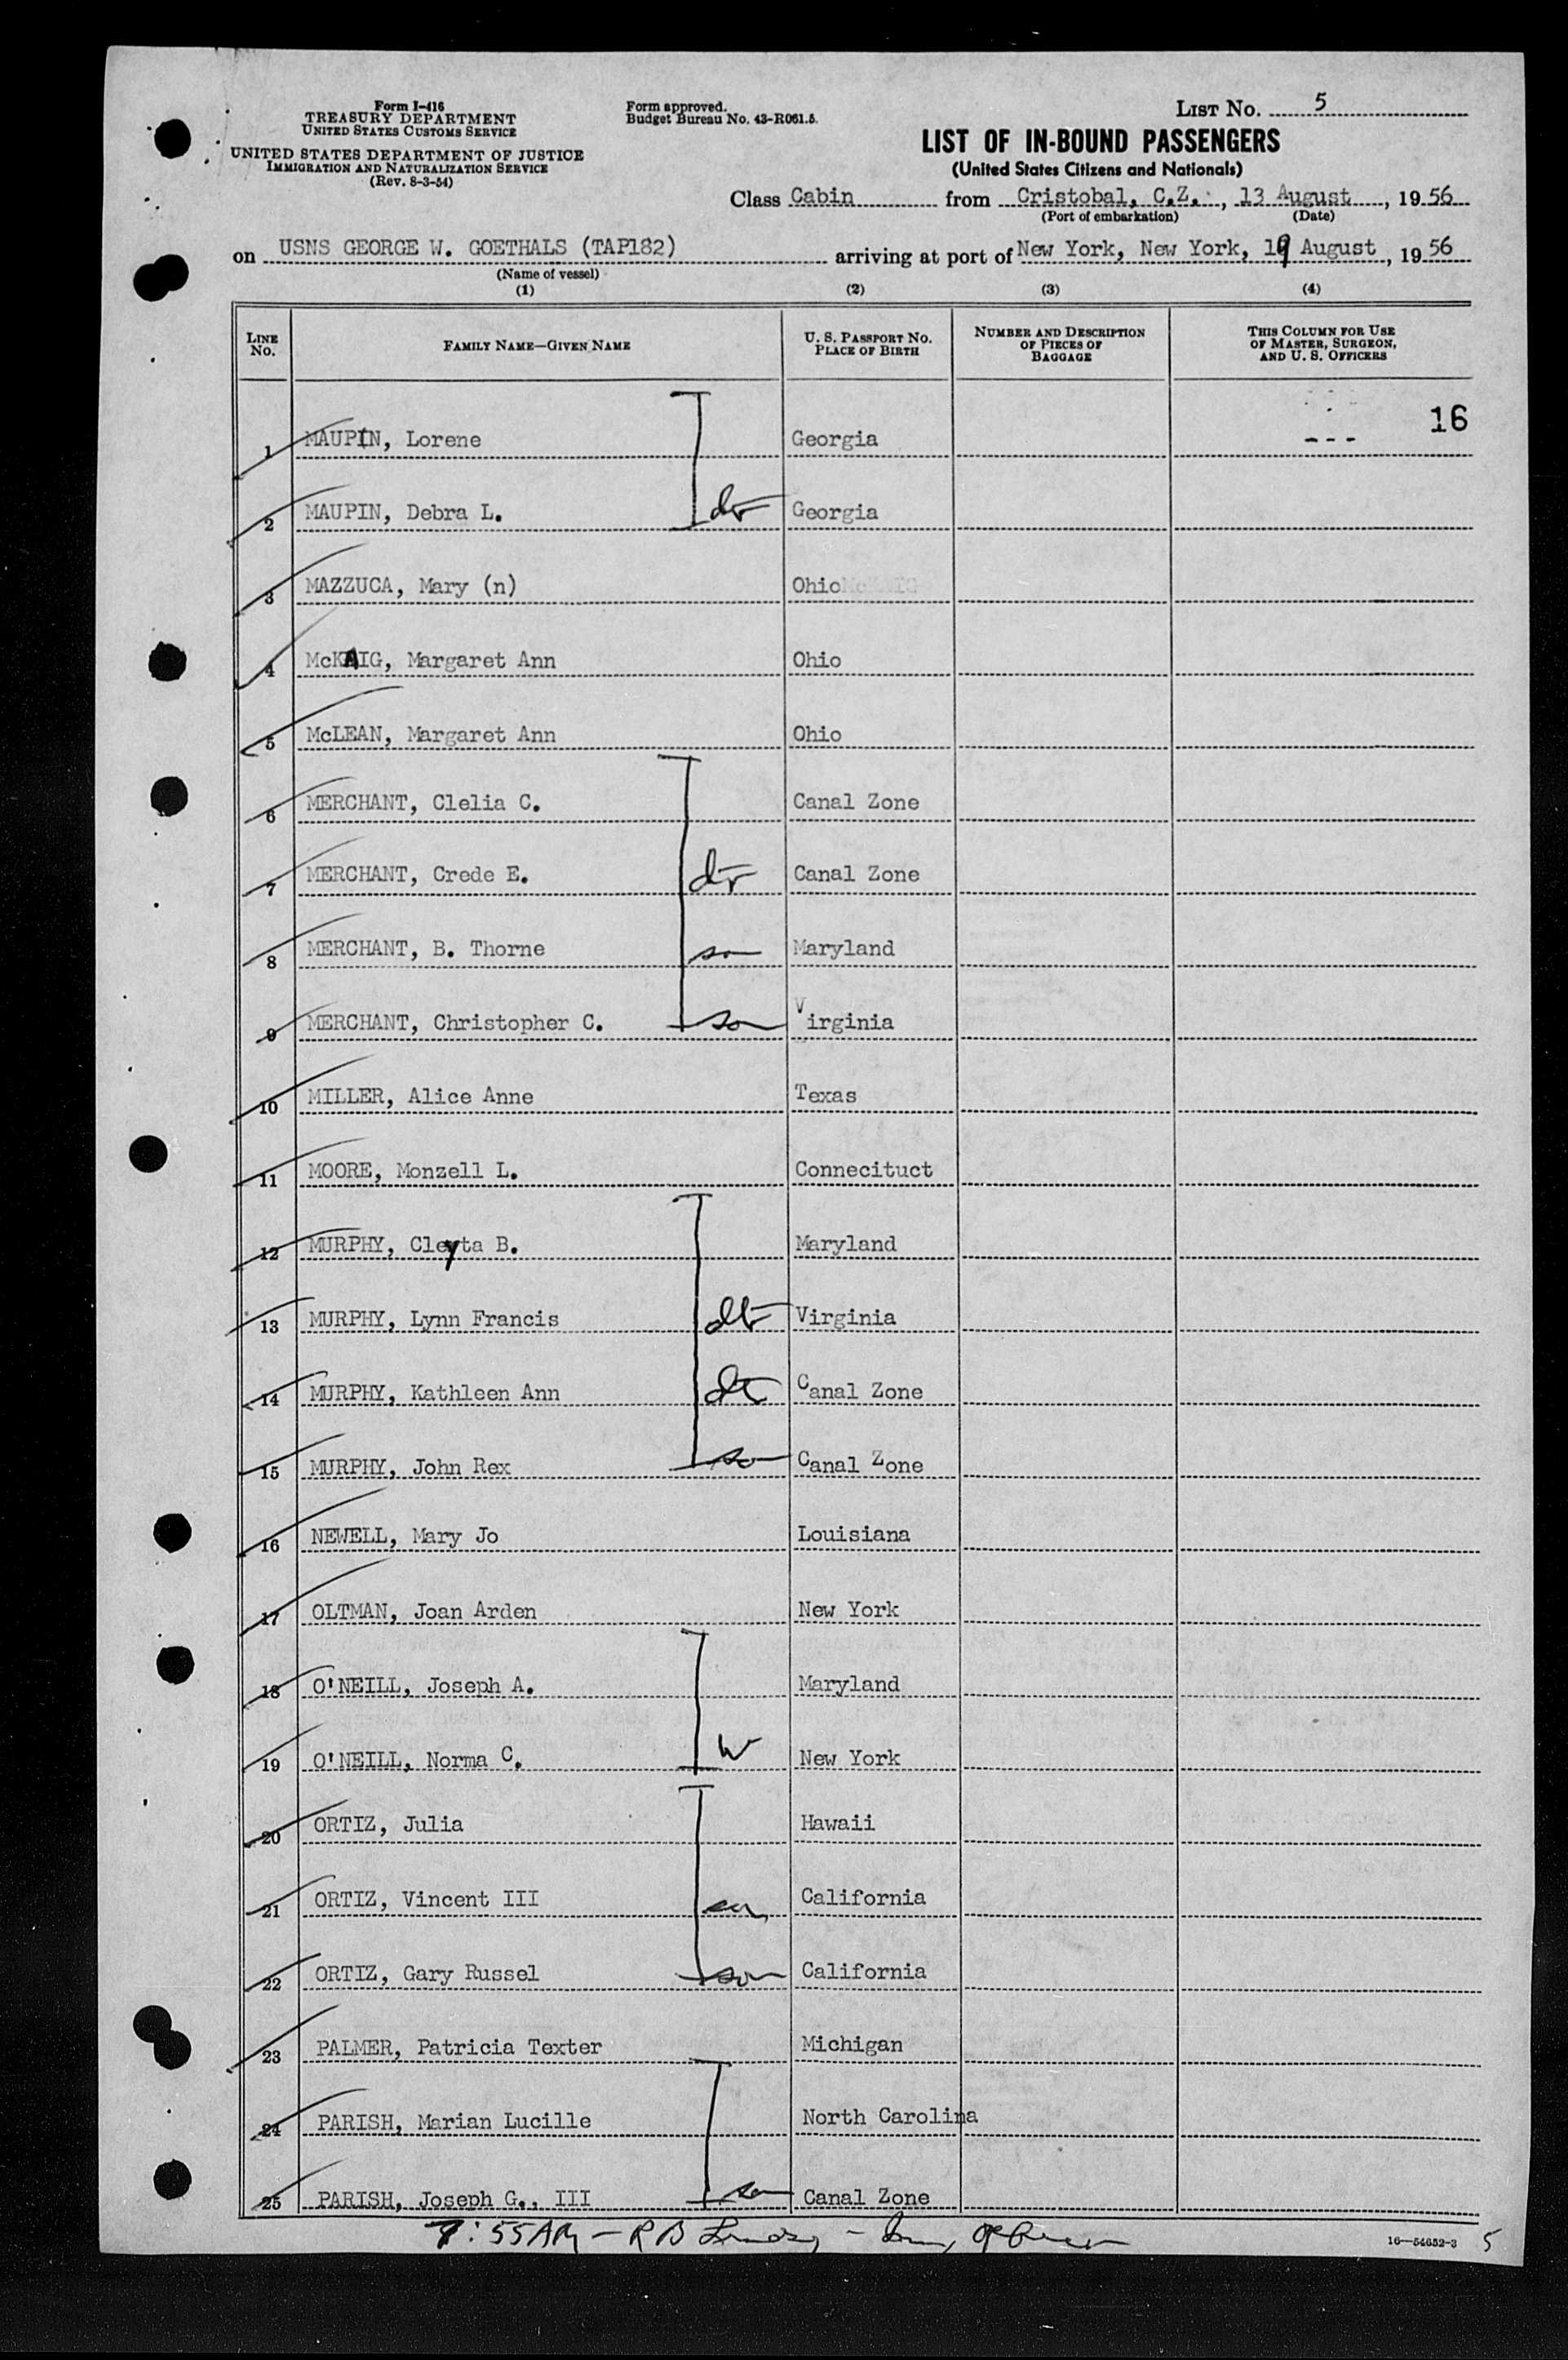 Form I-416
TREASURY DEPARTMENT
UNITED STATES CUSTOMS SERVICE
UNITED STATES DEPARTMENT OF JUSTICE
IMMIGRATION AND NATURALIZATION SERVICE
(Rev. 8-3-54)
Form approved.
Budget Bureau No. 43-R061.5.
LIST No. 5
LIST OF IN-BOUND PASSENGERS
(United States Citizens and Nationals)
Class Cabin from Cristobal, C.Z., 13 August, 1956
(Port of embarkation) (Date)
on USNS GEORGE W. GOETHALS (TAP182) arriving at port of New York, New York, 19 August, 1956
(Name of vessel)
(1) (2) (3) (4)
LINE No. FAMILY NAME—GIVEN NAME U. S. PASSPORT NO. PLACE OF BIRTH NUMBER AND DESCRIPTION OF PIECES OF BAGGAGE THIS COLUMN FOR USE OF MASTER, SURGEON, AND U. S. OFFICERS
16
1 MAUPIN, Lorene Georgia ---
2 MAUPIN, Debra L. dr Georgia
3 MAZZUCA, Mary (n) Ohio
4 McKAIG, Margaret Ann Ohio
5 McLEAN, Margaret Ann Ohio
6 MERCHANT, Clelia C. Canal Zone
7 MERCHANT, Crede E. dr Canal Zone
8 MERCHANT, B. Thorne son Maryland
9 MERCHANT, Christopher C. son Virginia
10 MILLER, Alice Anne Texas
11 MOORE, Monzell L. Connecituct
12 MURPHY, Cleyta B. Maryland
13 MURPHY, Lynn Francis dtr Virginia
14 MURPHY, Kathleen Ann dtr Canal Zone
15 MURPHY, John Rex son Canal Zone
16 NEWELL, Mary Jo Louisiana
17 OLTMAN, Joan Arden New York
18 O'NEILL, Joseph A. Maryland
19 O'NEILL, Norma C. W New York
20 ORTIZ, Julia Hawaii
21 ORTIZ, Vincent III son California
22 ORTIZ, Gary Russel son California
23 PALMER, Patricia Texter Michigan
24 PARISH, Marian Lucille North Carolina
25 PARISH, Joseph G., III son Canal Zone
7:55AM - R B - Officer
16—54652-3 5